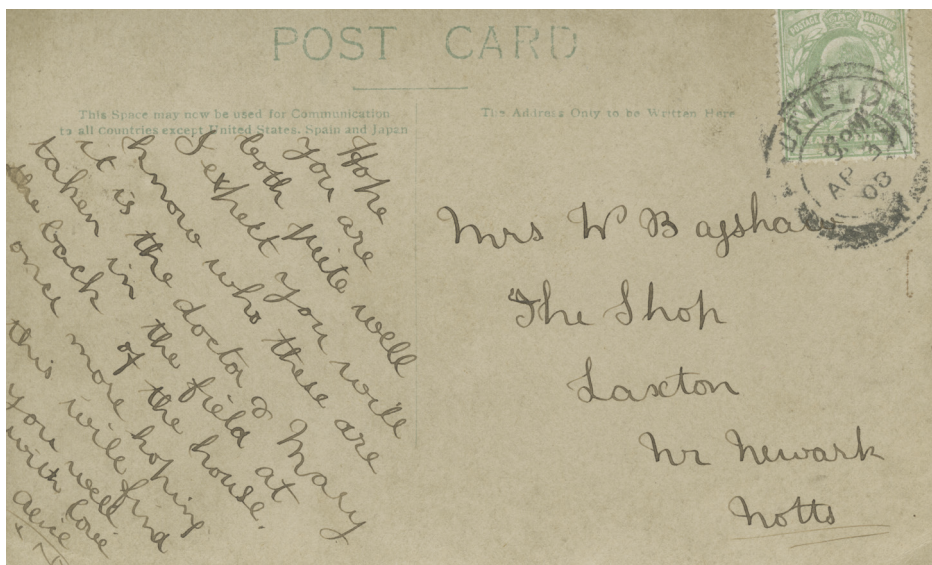 POST CARD
This Space may now be used for Communication
to all Countries except United States, Spain and Japan
The Address Only to be Written Here
Hope
you are
both quite well
I expect you will
know who these are
it is the doctor & Mary
taken in the field at
the back of the house.
once more hoping
this will find
you well
with love
Alice
Mrs W Bagshaw
The Shop
Laxton
Nr Newark
Notts
PM
AP 3
08